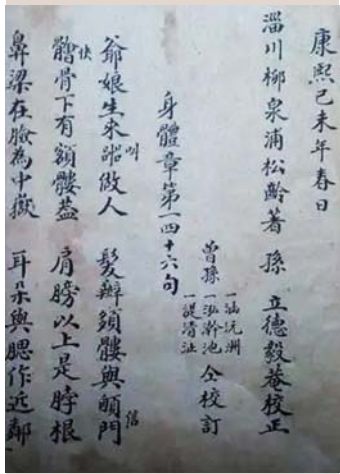 康熙己未年春日
淄川柳泉蒲松齡著 孫 立德毅菴校正
一泓澣池
一諟清沚
曾孫 仝校訂
身體章第一 四十六句
爺娘生來做人 髮辮額髏與頭門
膾骨下有額髏蓋 肩膀以上是脖根
鼻梁在臉為中嶽 耳朵與腮作近鄰